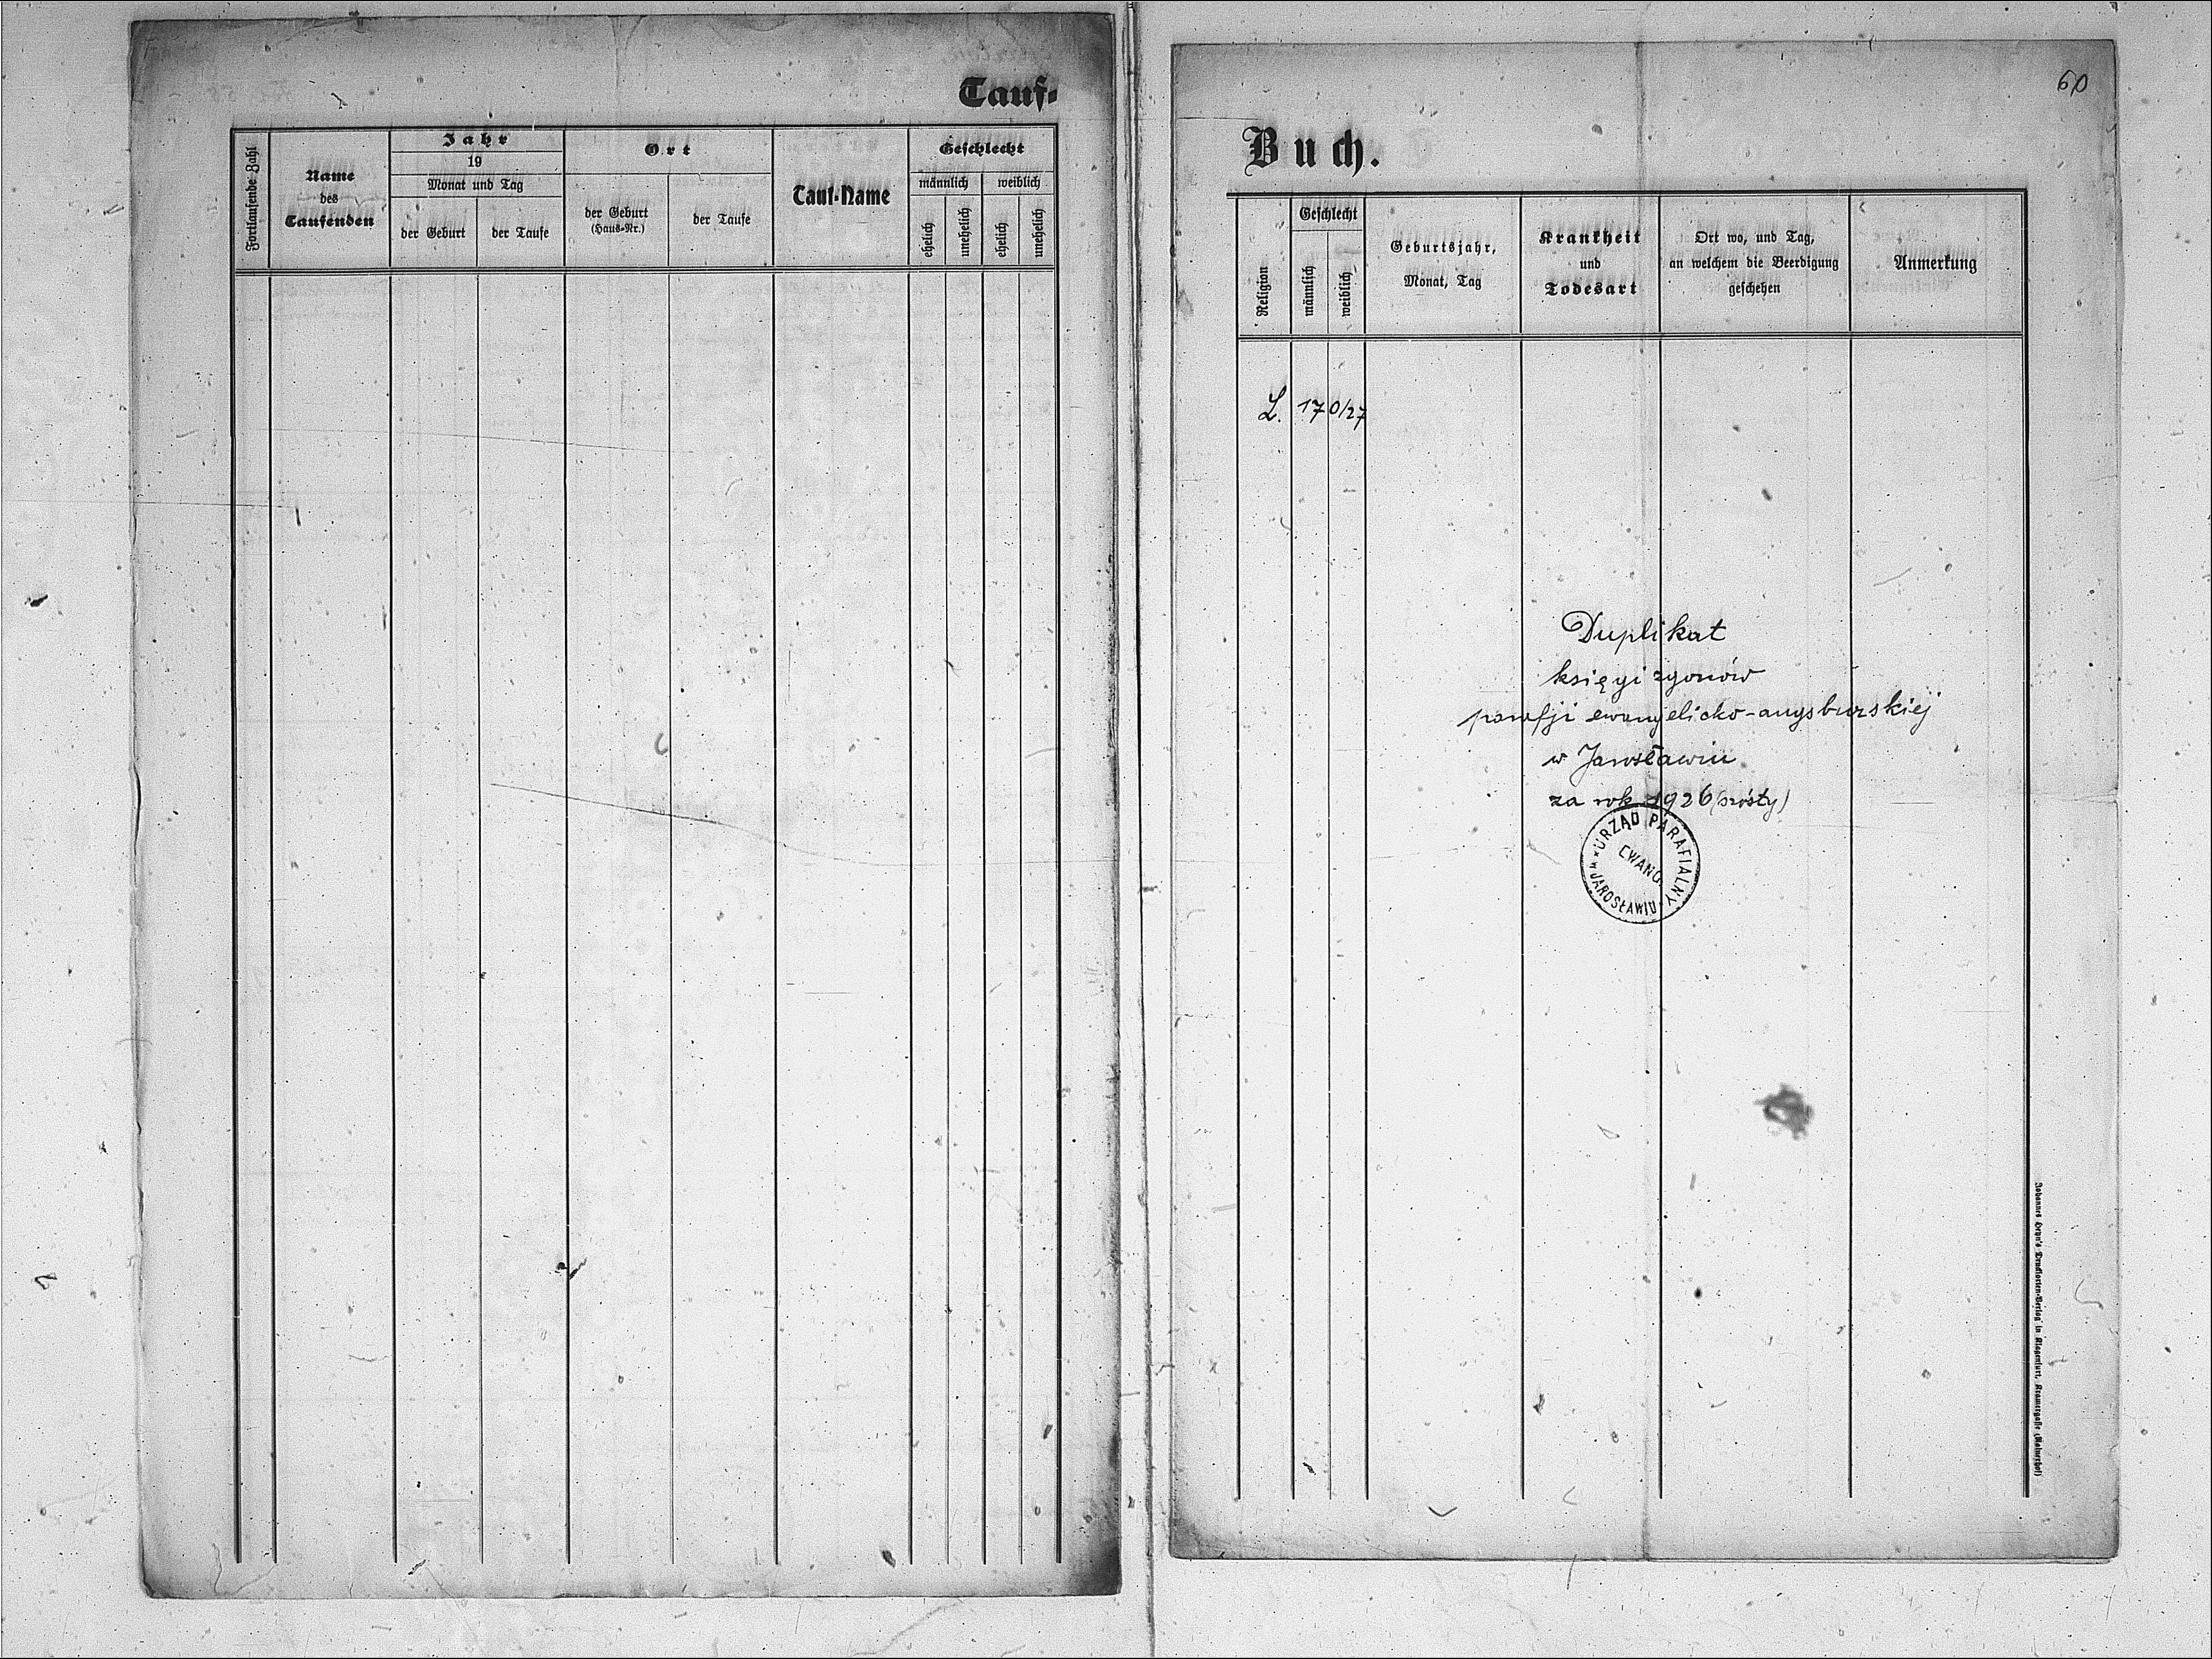 Tauf-
Fortlaufende Zahl
Name
des
Taufenden
Jahr
19
Monat und Tag
der Geburt
der Taufe
Ort
der Geburt
(Haus-Nr.)
der Taufe
Tauf-Name
Geschlecht
männlich
weiblich
ehelich
unehelich
ehelich
unehelich
60
Buch.
Religion
Geschlecht
männlich
weiblich
Geburtsjahr,
Monat, Tag
Krankheit
und
Todesart
Ort wo, und Tag,
an welchem die Beerdigung
geschehen
Anmerkung
L. 170/27
Duplikat
księgi zgonów
parafji ewangelicko-augsburskiej
w Jarosławiu
za rok 1926 (szósty)
URZĄD PARAFIALNY
EWANG.
W JAROSŁAWIU
Johannes Heyn's Drucksorten-Verlag in Klagenfurt, Kramergasse